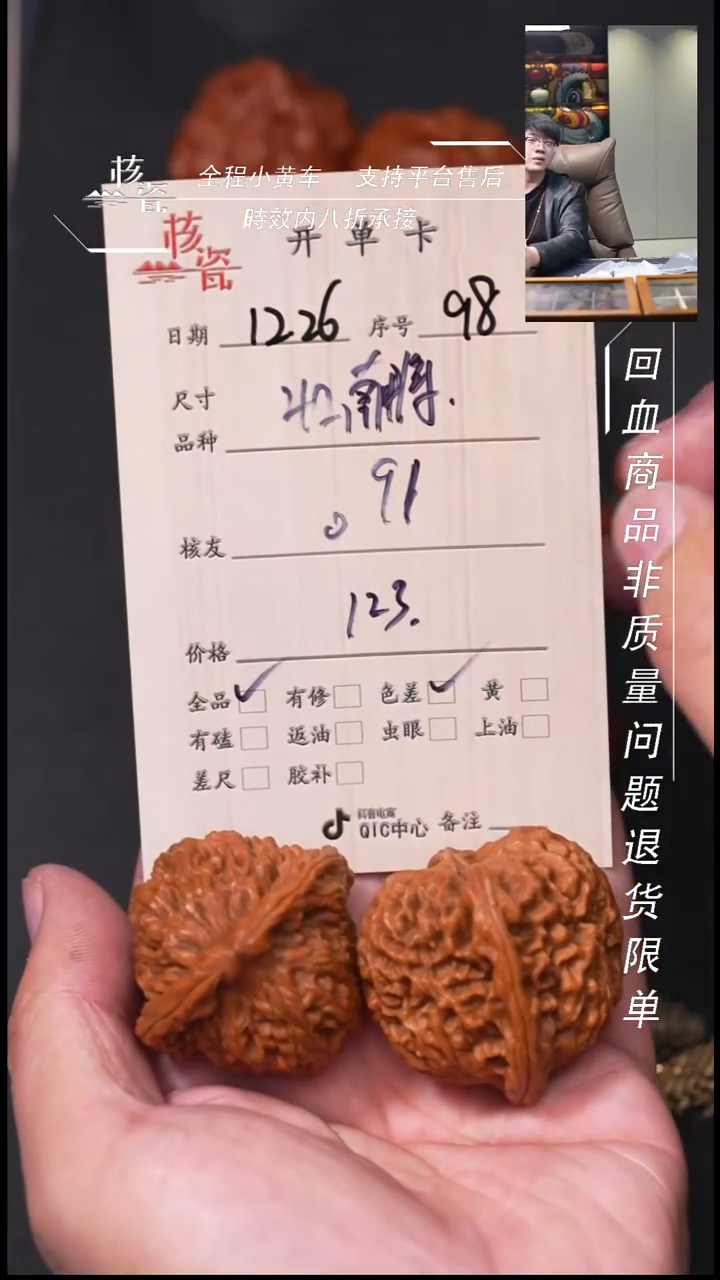 核瓷
全程小黄车 支持平台售后
時效内八折承接
核瓷
开单卡
日期 1226 序号 98
尺寸
品种
核友 91
价格 123.
全品 有修 色差 黄
有磕 返油 虫眼 上油
差尺 胶补
抖音电商
QIC中心 备注
回血商品非质量问题退货限单